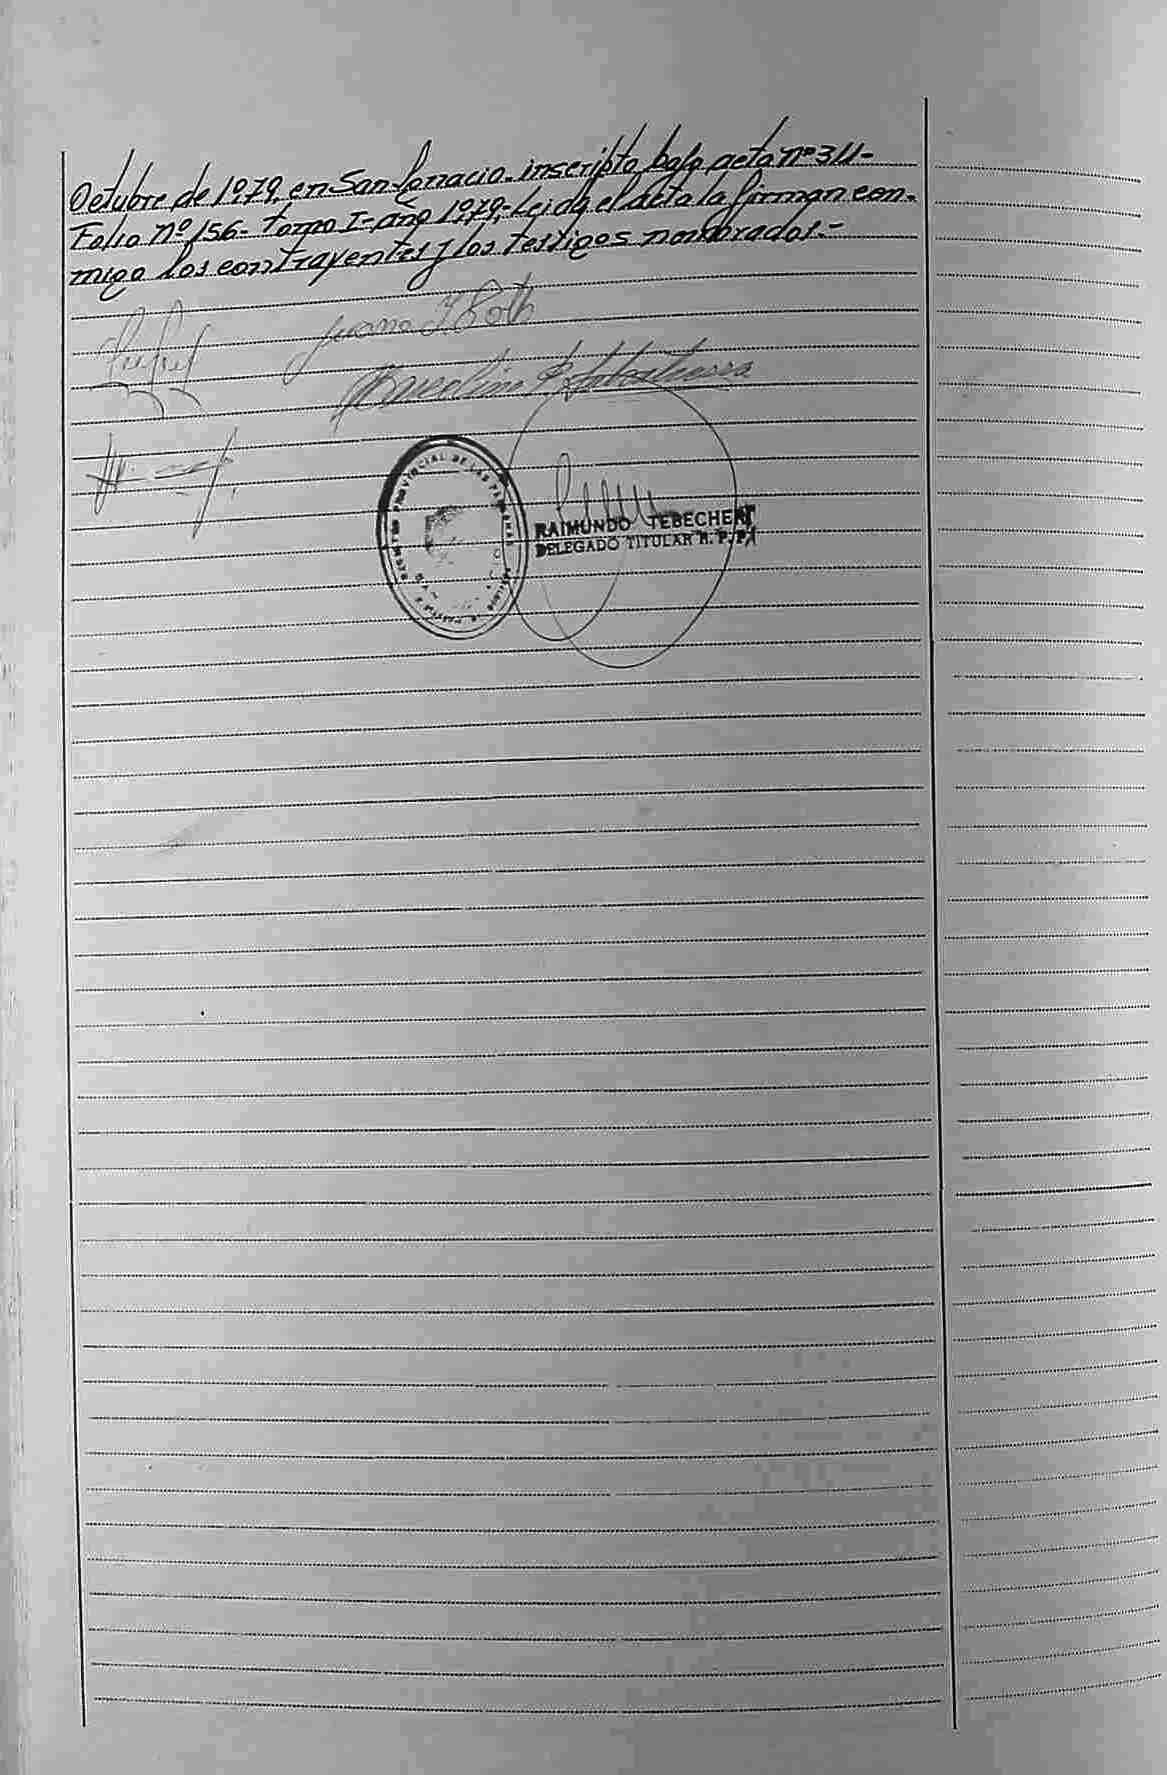 Octubre de 1979, en San Ignacio- inscripto bajo acta nº 311-
Folio nº 156- tomo I- año 1979,- Leida el acta la firman con-
migo los contrayentes y los testigos nombrados.-
Juana I Roth
PROVINCIAL DE LAS PERSONAS
RAIMUNDO TEBECHERI
DELEGADO TITULAR R. P. P.